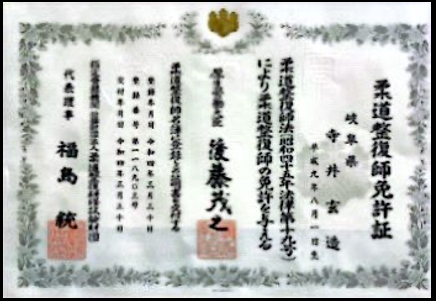 柔道整復師免許証
岐阜県
寺井玄造
平成九年八月一日生
柔道整復師法(昭和四十五年法律第十九号)
により柔道整復師の免許を与える
厚生労働大臣
後藤茂之
柔道整復師名簿に登録した証明書を交付する
登録年月日 令和四年三月三十日
登録番号 第一一八九〇三号
交付年月日 令和四年三月三十日
代表理事 福島統